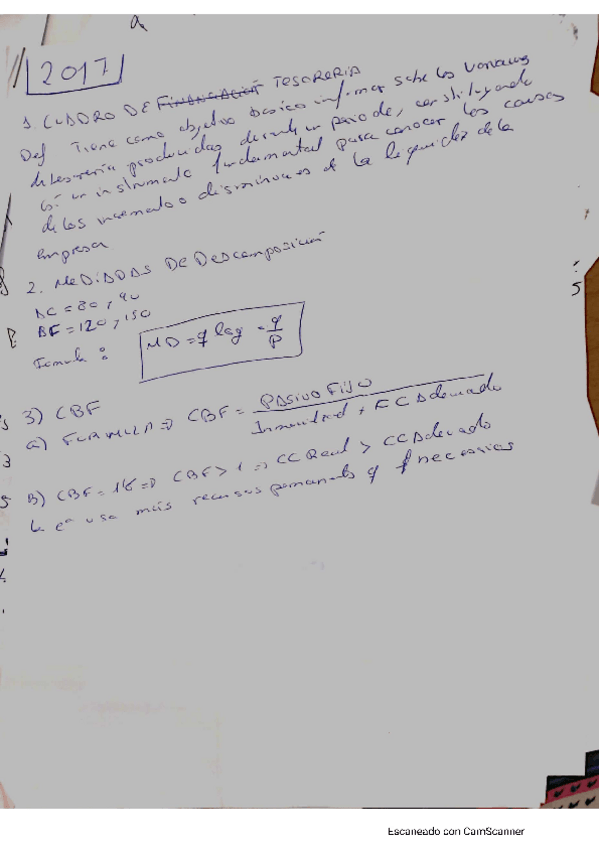 a
2017
1. CUADRO DE FINANCIACIÓN TESORERIA
Def Tiene como objetivo basico informar sobre las variaciones
de tesorería producidas durante un periodo, constituyendo
un instrumento fundamental para conocer las causas
de los incrementos o disminuciones de la liquidez de la
empresa
2. MEDIDAS DE DESCOMPOSICIÓN
AC = 80, 90
BF = 120, 150
Formula:
MD = q log = q/p
3) CBF
a) FORMULA => CBF = PASIVO FIJO / Inmovilizad + FC Adecuado
B) CBF = 1'8 => CBF > 1 => CC Real > CC Adecuado
la eª usa más recursos permanents q necesarias
5
3
Escaneado con CamScanner